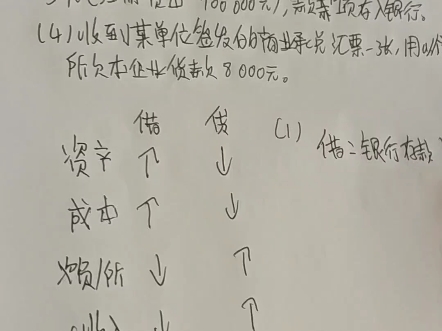 100 000元),款项存入银行。
(4)收到某单位签发的商业承兑汇票一张,用以
所欠本企业货款8 000元。
借 贷 (1) 借:银行存款
资产 ↑ ↓
成本 ↑ ↓
负/所 ↓ ↑
收入 ↓ ↑